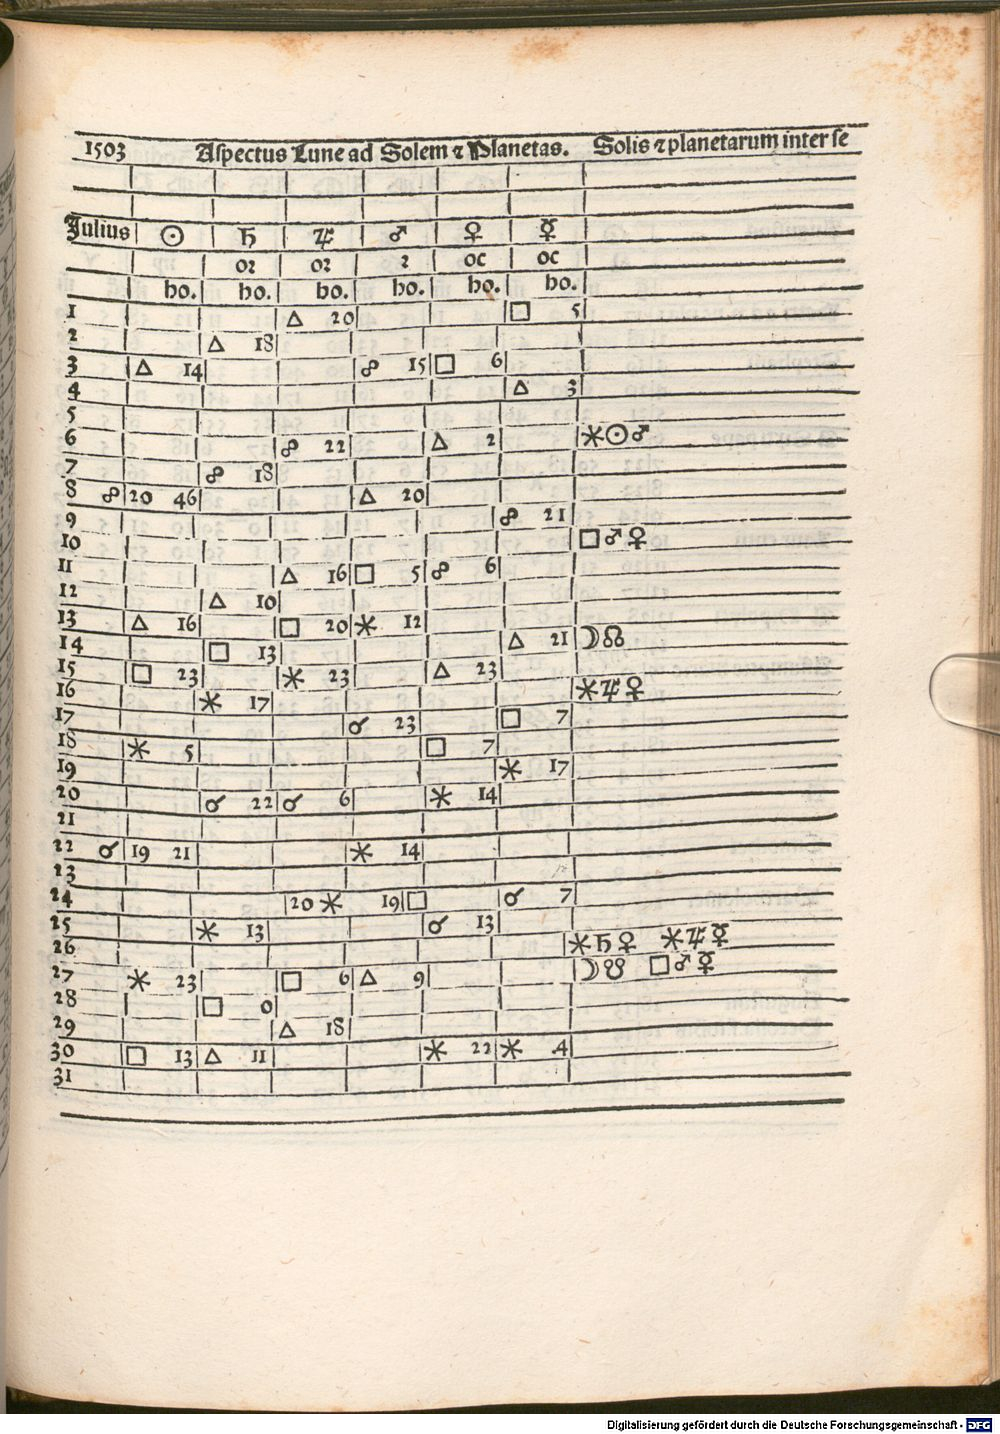 1503 Aspectus Lune ad Solem ⁊ Planetas. Solis ⁊ planetarum inter se
Julius ☉ ♄ ♃ ♂ ♀ ☿
oꝛ oꝛ ꝛ oc oc
ho. ho. ho. ho. ho. ho.
1 △ 20 □ 5
2 △ 18
3 △ 14 ☍ 15 □ 6
4 △ 3
5
6 ☍ 22 △ 2 ⚹☉♂
7 ☍ 18
8 ☍ 20 46 △ 20
9 ☍ 21
10 □♂♀
11 △ 16 □ 5 ☍ 6
12 △ 10
13 △ 16 □ 20 ⚹ 12
14 □ 13 △ 21 ☽☊
15 □ 23 ⚹ 23 △ 23
16 ⚹ 17 ⚹♃♀
17 ☌ 23 □ 7
18 ⚹ 5 □ 7
19 ⚹ 17
20 ☌ 22 ☌ 6 ⚹ 14
21
22 ☌ 19 21 ⚹ 14
23
24 20 ⚹ 19 □ ☌ 7
25 ⚹ 13 ☌ 13
26 ⚹♄♀ ⚹♃☿
27 ⚹ 23 □ 6 △ 9 ☽☋ □♂☿
28 □ 0
29 △ 18
30 □ 13 △ 11 ⚹ 22 ⚹ .4
31
Digitalisierung gefördert durch die Deutsche Forschungsgemeinschaft - DFG